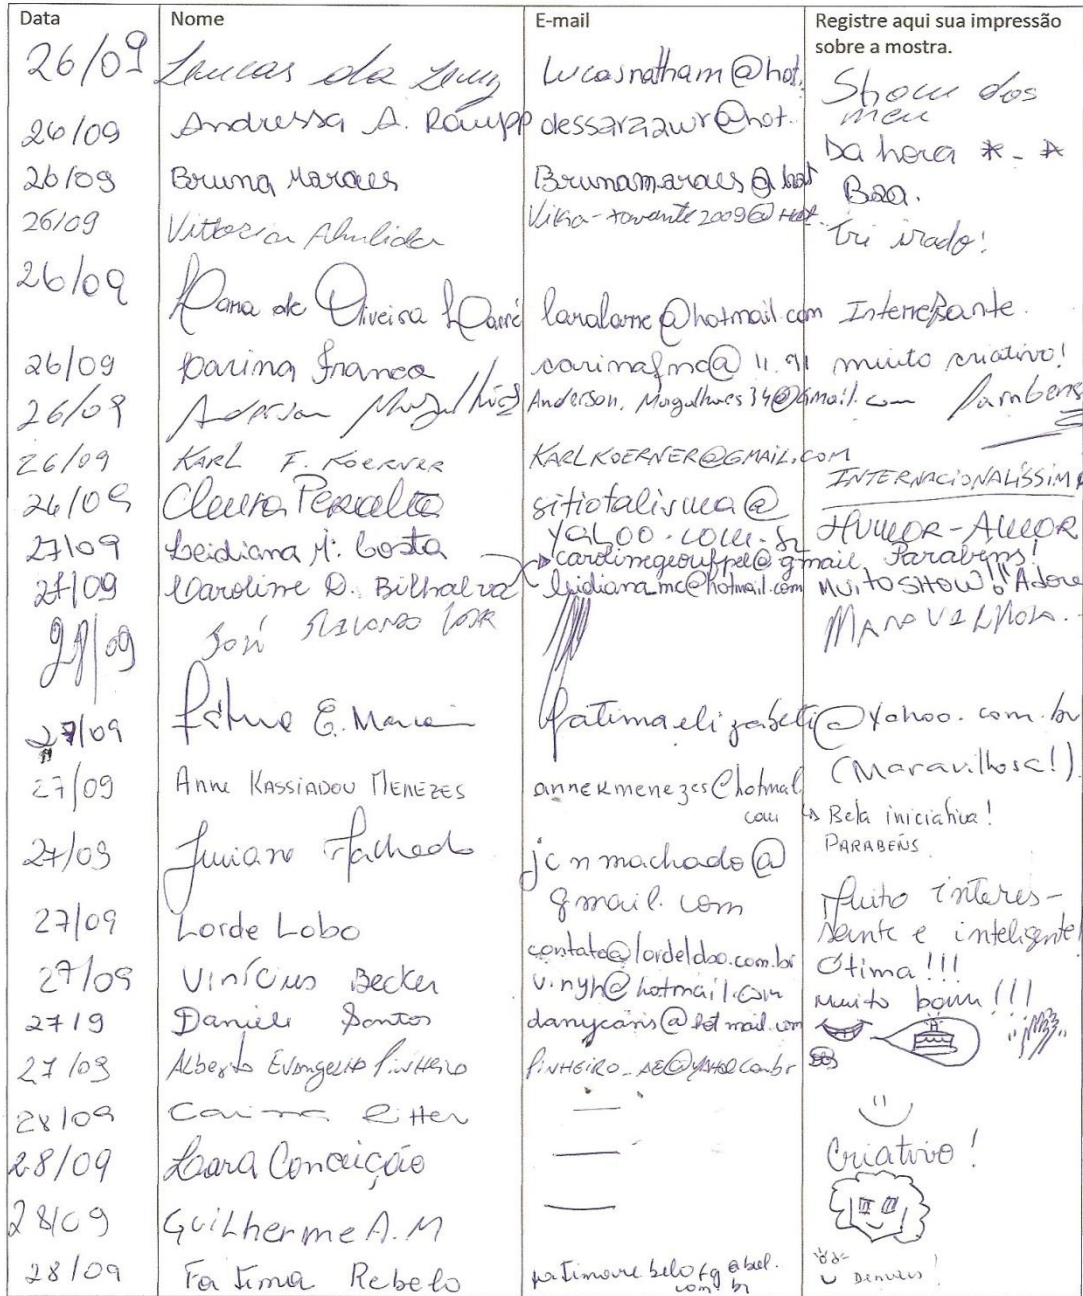 Data Nome E-mail Registre aqui sua impressão
sobre a mostra.
26/09 Lucas da Luz Lucasnatham@hot. Show dos
meu
26/09 Andressa A. dessarzawr@hot. Da hora *-*
26/09 Bruna Maraes Brunamaraes@hot Boa.
26/09 Vittoria Almeida 2009@Hot. tri irado!
26/09 Lara de Oliveira Larré laralarre@hotmail.com Interessante.
26/09 Carina Franca carinafnc@ 11. 91 muito criativo!
26/09 Anderson Magalhães Anderson.Magalhaes34@Gmail.com Parabens
26/09 KARL F. KOERNER KARLKOERNER@GMAIL.COM
INTERNACIONALÍSSIMA
26/09 Cleusa Peralta sitiotalisma@
yahoo.com.br HUMOR-AMOR
27/09 Leidiana M. Costa carolinegeoufpel@gmail Parabéns!
27/09 Caroline D. Bilhalva leidiana_mc@hotmail.com MUITO SHOW!! Adore
27/09 José MARAVILHOSA.
27/09 Fátima E. Maria fatimaelizabeti@yahoo.com.br
(Maravilhosa!)
27/09 Anne KASSIADOU MENEZES annekmenezes@hotmal
com Bela iniciativa!
PARABÉNS
27/09 Juliano Machado jcnmachado@
gmail.com
Muito interes-
27/09 Lorde Lobo sante e inteligente!
contato@lordelobo.com.br
27/09 Vinícius Becker v.nyh@hotmail.com Ótima!!!
27/9 Daniele Santos danycaris@hotmail.com Muito bom!!!
27/09 Alberto Evangelio Pinheiro PINHEIRO_AE@YAHOO.com.br
28/09 Carina Ritter —
28/09 Lara Conceição — Criativo!
28/09 Guilherme A. M —
28/09 Fatima Rebelo